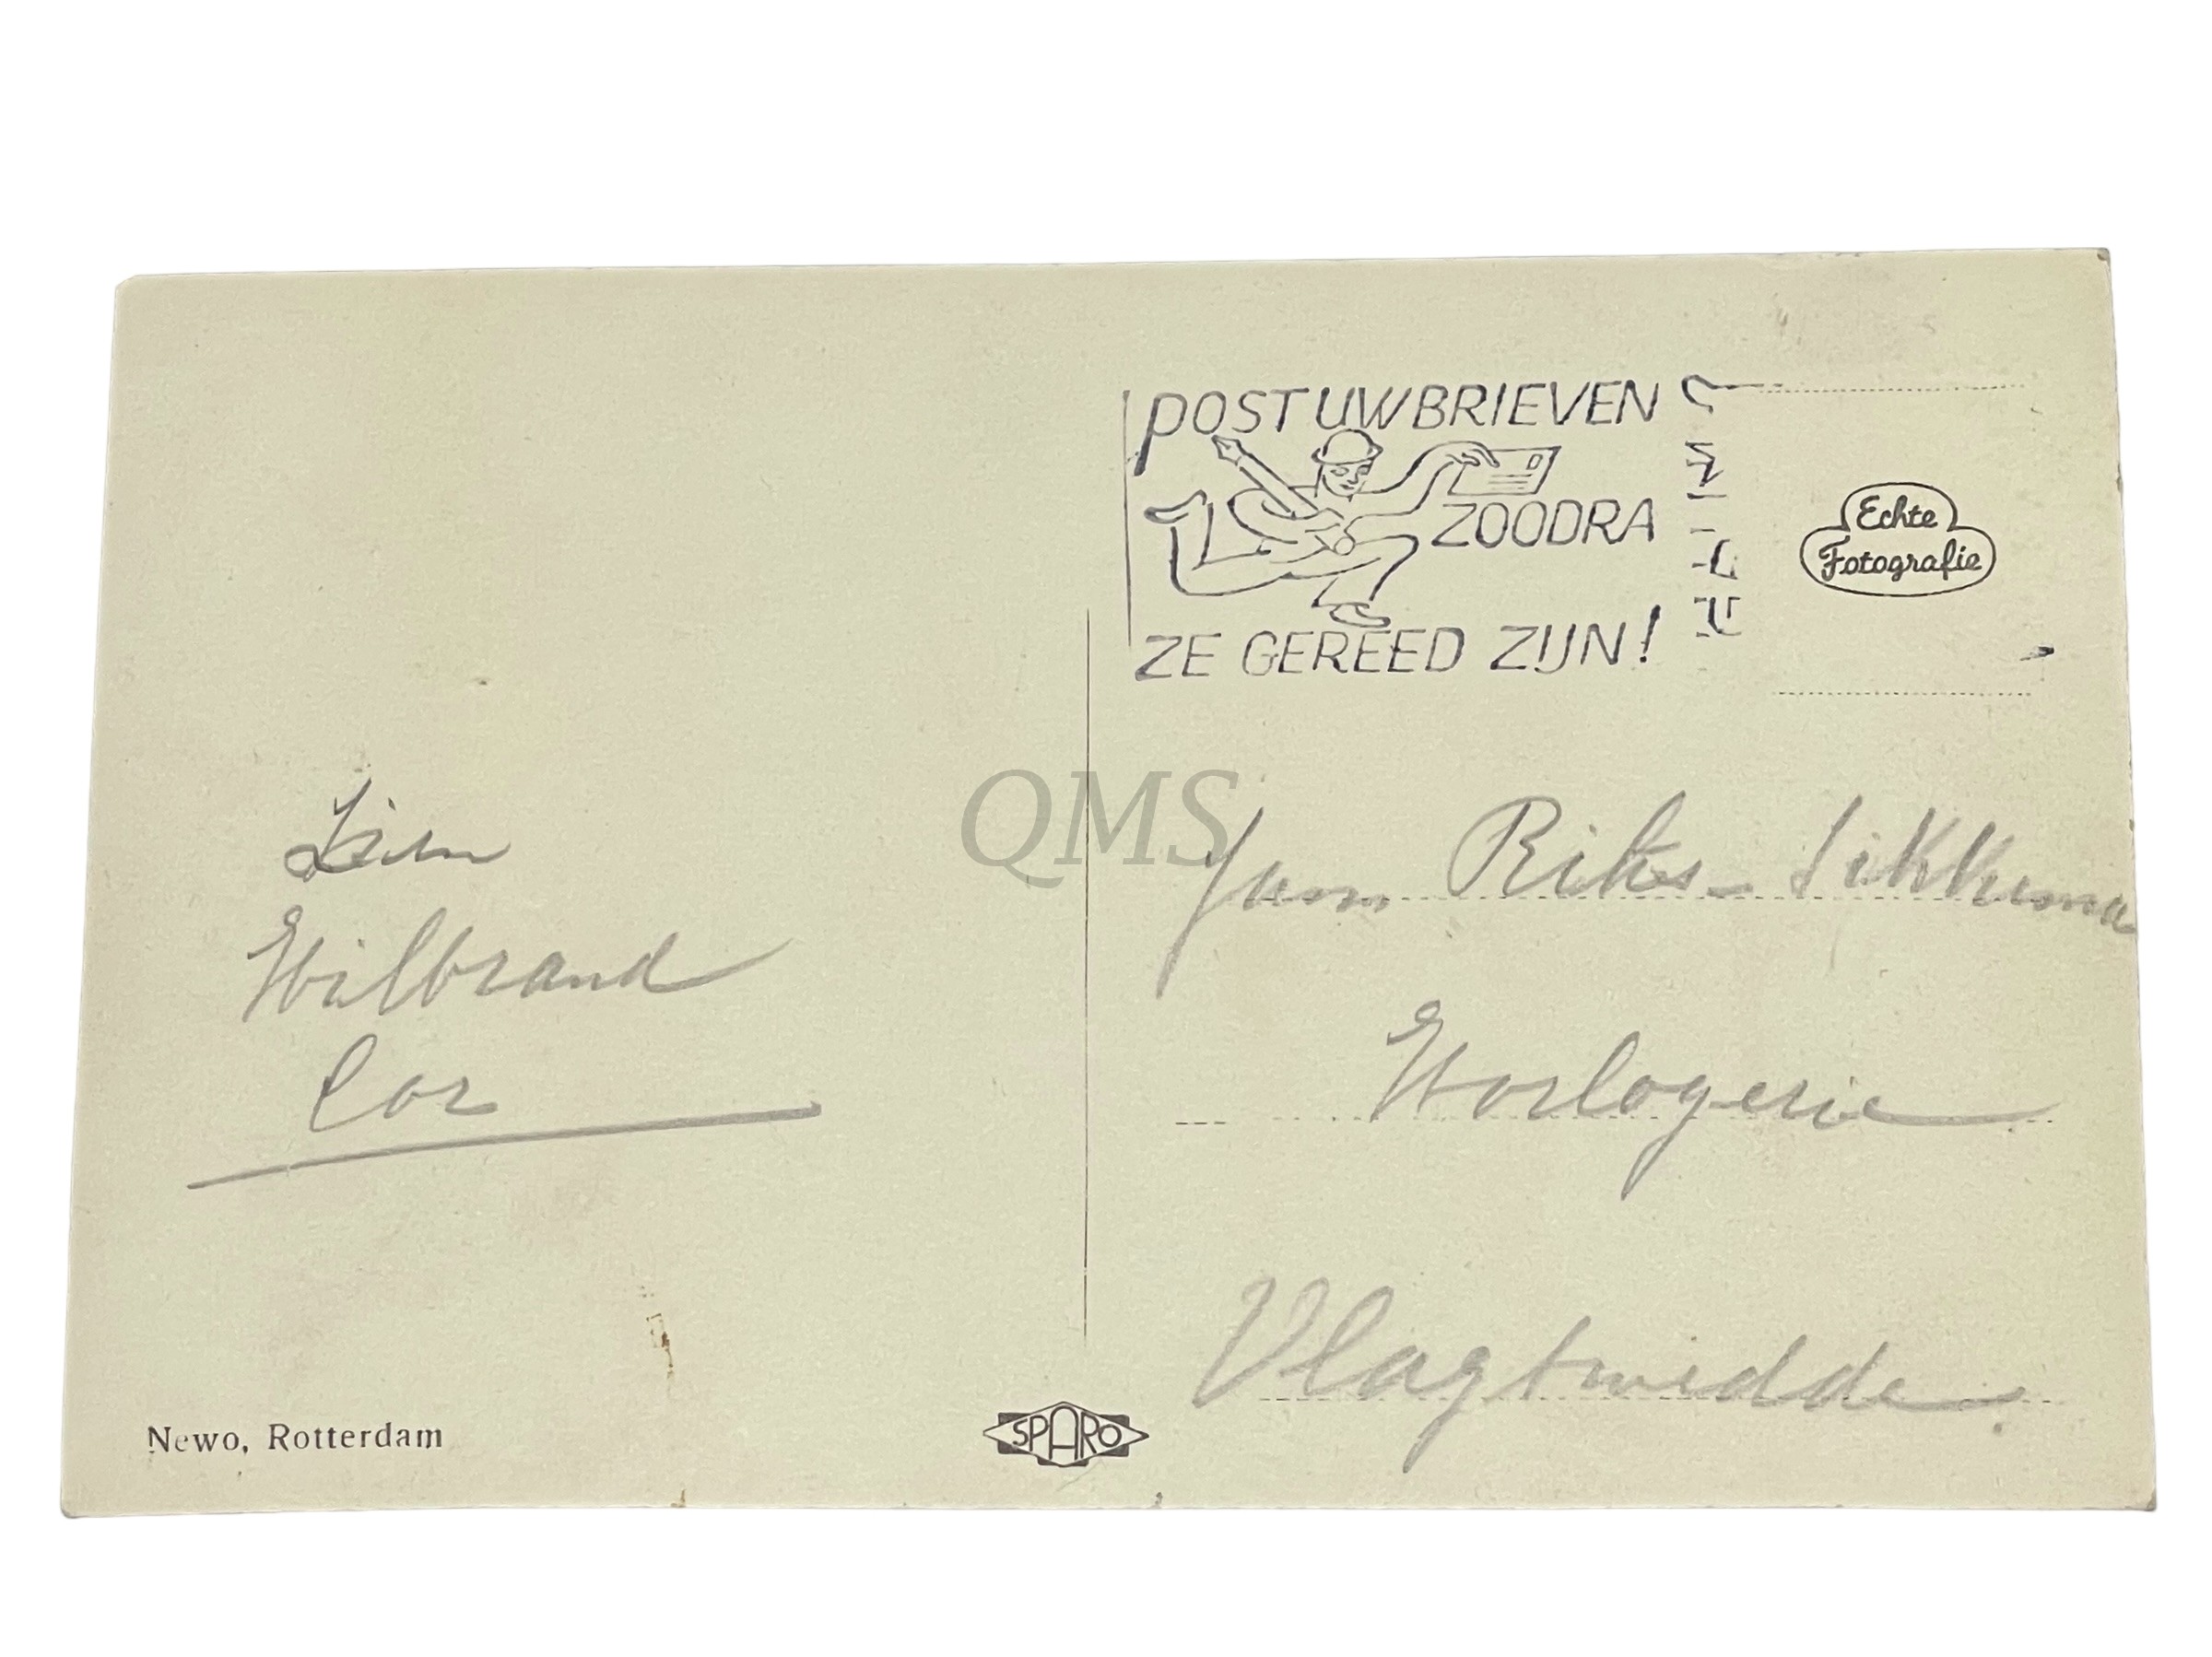 POST UW BRIEVEN
ZOODRA
ZE GEREED ZIJN!
Echte
Fotografie
QMS
Fam Riks-Sikkema
Horlogerie
Vlagtwedde
Wilbrand
Cor
Newo, Rotterdam
SPARO